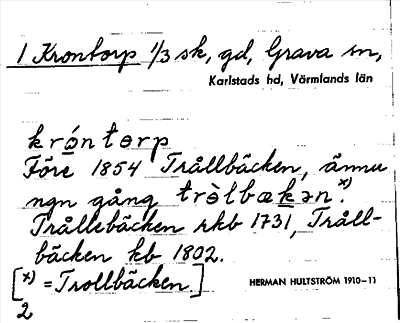 1 Krontorp 1/3 sk, gd, Grava sn,
Karlstads hd, Värmlands län
krǿntɵrp
Före 1854 Trållbäcken, ännu
ngn gång trɵ̀lbækən.x)
Trållebäcken rkb 1731, Tråll-
bäcken kb 1802.
[x) = Trollbäcken.]
HERMAN HULTSTRÖM 1910–11
2